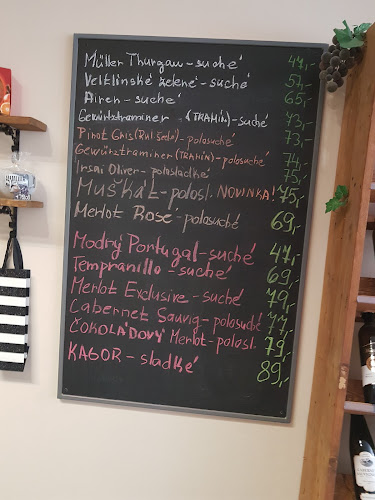 Müller Thurgau - suché 47,-
Veltlínské zelené - suché 57,-
Airen - suché 65,-
Gewürtztraminer (TRAMÍN) - suché 73,-
Pinot Gris (Rul. šedé) - polosuché 73,-
Gewürztraminer (TRAMÍN) - polosuché 74,-
Irsai Oliver - polosladké 75,-
Muškát - polosl. NOVINKA! 75,-
Merlot Rose - polosuché 69,-
Modrý Portugal - suché 47,-
Tempranillo - suché 69,-
Merlot Exclusive - suché 79,-
Cabernet Sauvig - polosuché 77,-
ČOKOLÁDOVÝ Merlot - polosl. 79,-
KAGOR - sladké 89,-